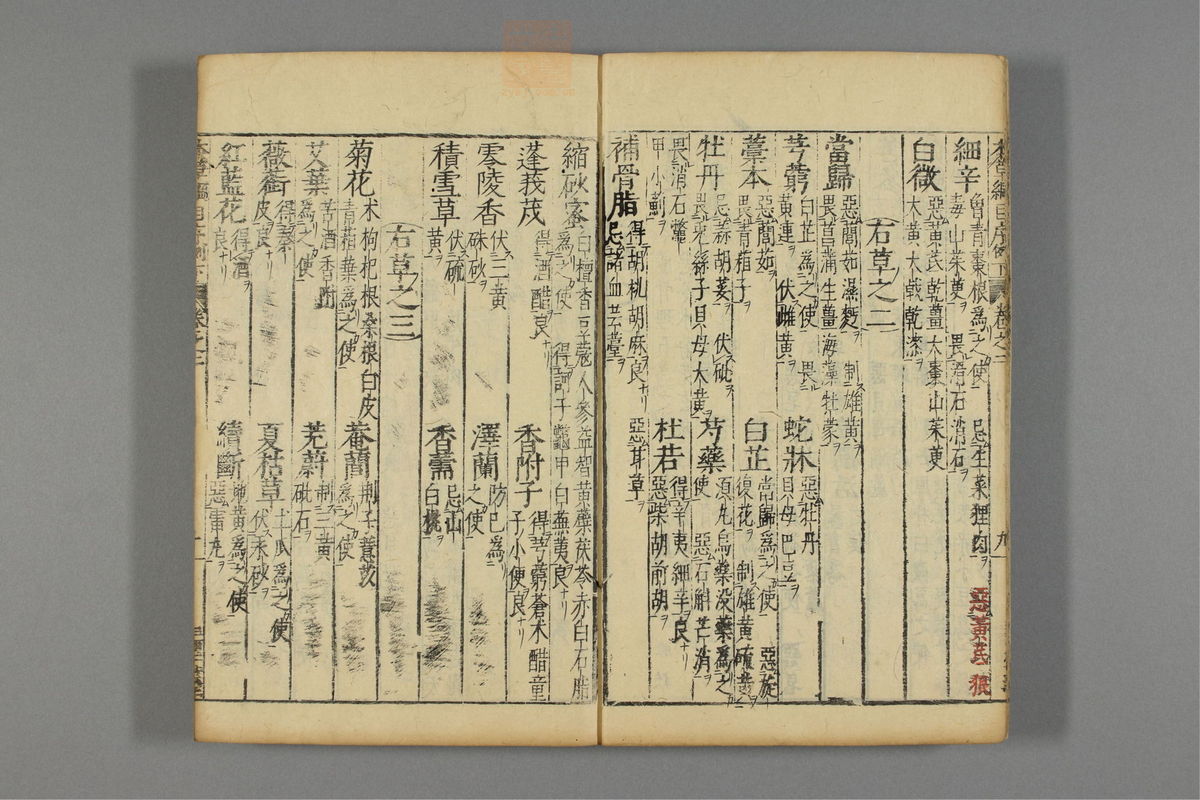 細辛 曾青棗根為之使 忌生菜狸肉 惡黃芪狼
毒山茱萸 畏滑石消石
白薇 惡黃芪乾薑大棗山茱萸
大黃大戟乾漆
右草之二
當歸 惡䕡茹濕麪 制雄黃
畏菖蒲生薑海藻牡蒙
芎藭 白芷為之使 畏
黃連 伏雌黃
蛇牀 惡牡丹
貝母巴豆
藁本 惡䕡茹
畏青葙子
白芷 當歸為之使 惡旋
復花 制雄黃硫黃
牡丹 忌蒜胡荽 伏砒
畏兔絲子貝母大黃
芍藥 須丸烏藥沒藥為之
使 惡石斛芒消
畏消石鱉
甲小薊
杜若 得辛夷細辛良
惡柴胡前胡
補骨脂 得胡桃胡麻良 惡甘草
忌諸血芸薹
縮砂蜜 白檀香豆蔻人參益智黃蘗茯苓赤白石脂
為之使 得訶子鱉甲白蕪荑良
蓬莪茂 得酒醋良
香附子 得芎藭蒼朮醋童
子小便良
零陵香 伏三黃
硃砂
澤蘭 防己為
之使
積雪草 伏硫
黃
香薷 忌山
白桃
右草之三
菊花 朮枸杞根桑根白皮
青葙葉為之使
菴䕡 荆子薏苡
為之使
艾葉 苦酒香附
為之使
茺蔚 制三黃
砒石
薇銜 得秦
皮良
夏枯草 土瓜為之使
伏汞砂
紅藍花 得酒
良
續斷 地黃為之使
惡雷丸